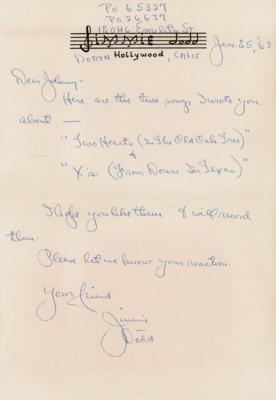 PO 65327
PO 26637
12046 Emelita St
JIMMIE DODD
NORTH Hollywood, CALIF.
Jan. 25, '63
Dear Johnny -
Here are the two songs I wrote you
about —
"Two Hearts (In The Old Oak Tree)"
+
"X's (From Down In Texas)"
I hope you like them & will record
them.
Please let me know your reaction.
Your friend
Jimmie
Dodd